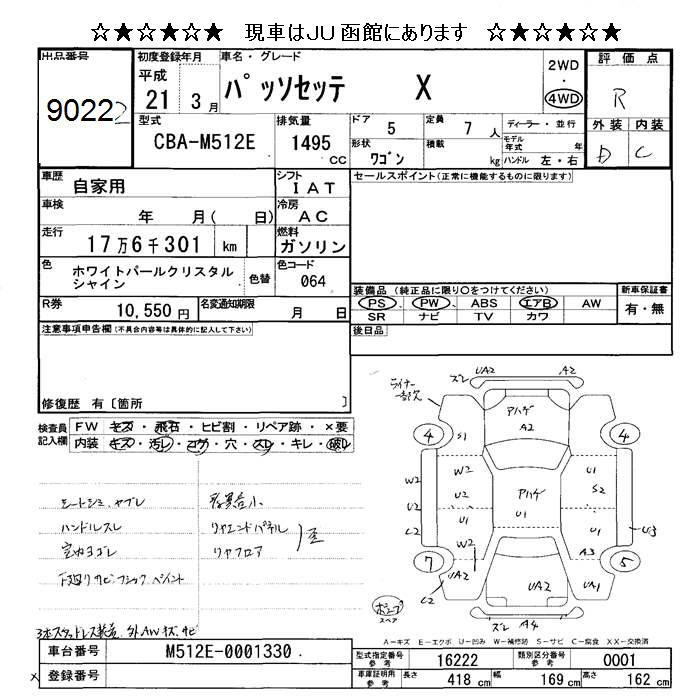 ☆★☆★☆★☆ 現車はＪＵ函館にあります ☆★☆★☆★☆
出品番号
90222
初度登録年月
平成
21 3月
車名・グレード
パッソセッテ X
2WD
・
4WD
評価点
R
外装 内装
D C
型式
CBA-M512E
排気量
1495
CC
ドア
5
定員
7人
形状
ワゴン
積載
kg
ディーラー・並行
モデル
年式
年
ハンドル 左・右
車歴
自家用
シフト
IAT
車検
年 月( 日)
冷房
AC
走行
17万6千301 km
燃料
ガソリン
色
ホワイトパールクリスタル
シャイン
色替
色コード
064
R券
10,550円
名変通知期限
月 日
セールスポイント(正常に機能するものに限ります)
装備品(純正品に限り○をつけてください)
PS PW ABS エアB AW
SR ナビ TV カワ
新車保証書
有・無
後日品
注意事項申告欄(不具合内容等は具体的に記入して下さい)
修復歴 有〔箇所 〕
検査員
記入欄
FW キズ・飛石・ヒビ割・リペア跡・×要
内装 キズ・汚レ・コゲ・穴・スレ・キレ・破レ
シートシミ、ヤブレ
ハンドルスレ
室内ヨゴレ
下廻りサビ、フジック ペイント
リヤエンドパネル
リヤフロア
歪
外AWキズ、サビ
ライナー
ズレ UA2 A2
アハゲ
A2
4 S1 4
W2 W2 U1
S2
U2 U2 アハゲ
U1 U1 U1
C2 U3
W2 A3
7 UA2 5
C2 UA2 UA1
スペア
ズレ A4
A－キズ E－エクボ U－凹み W－補修跡 S－サビ C－腐食 XX－交換済
車台番号
M512E-0001330
x 登録番号
型式指定番号
参考
16222
類別区分番号
参考
0001
車庫証明用
参考
長さ
418 cm
幅
169 cm
高さ
162 cm